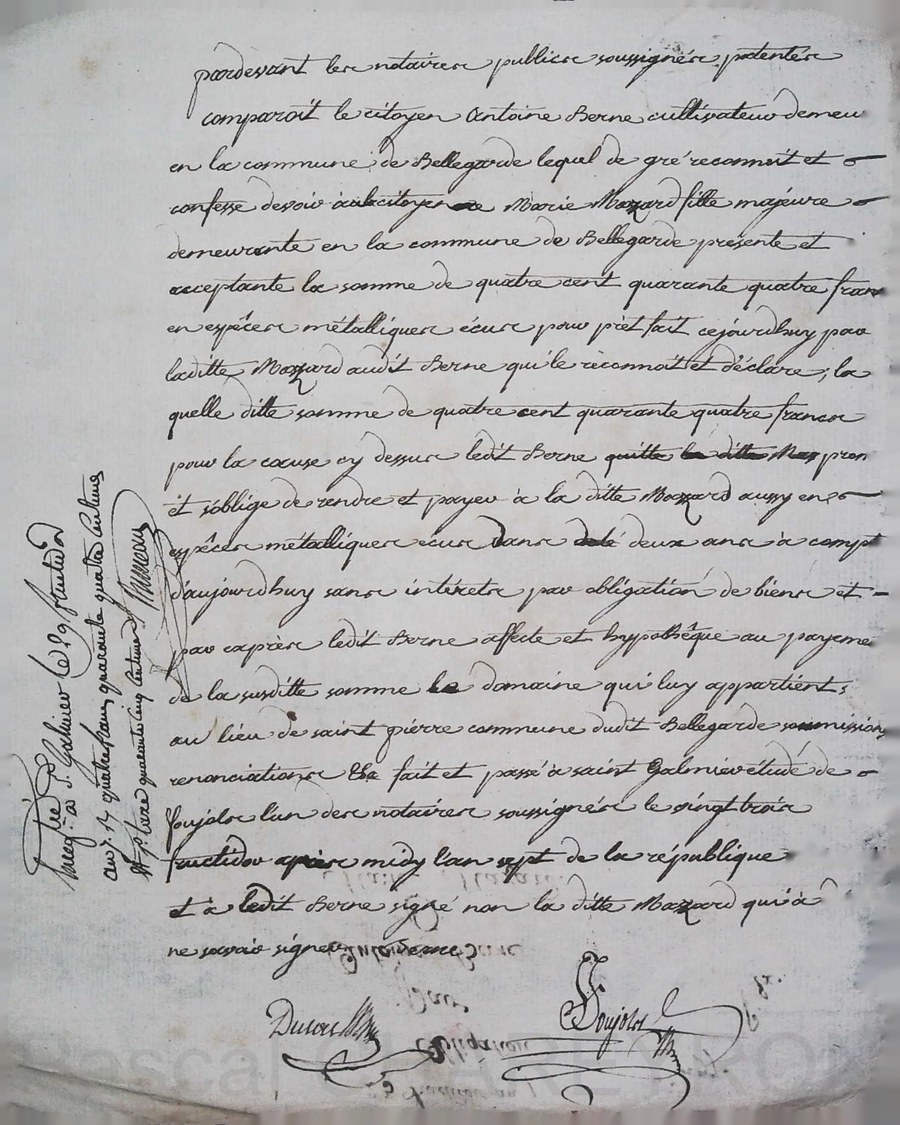 pardevant les notaires publics soussignés patentés
comparoit le citoyen Antoine Berne cultivateur demeu
en la commune de Bellegarde lequel de gré reconnoit et
confesse devoir à la citoyenne Marie Mazzard fille majeure
demeurante en la commune de Bellegarde présente et
acceptante la somme de quatre cent quarante quatre franc
en espèces métalliques écus pour prêt fait cejourdhuy par
laditte Mazzard audit Berne qui le reconnoit et déclare, la
quelle ditte somme de quatre cent quarante quatre francs
pour la cause cy dessus ledit Berne quitte la ditte Maz prom
et s'oblige de rendre et payer à la ditte Mazzard aussy en
espèces métalliques écus dans deux ans à compt
d'aujourdhuy sans intérets par obligation de biens et
par exprès ledit Berne affecte et hypothêque au payeme
de la susditte somme le domaine qui luy appartient
au lieu de saint pierre commune dudit Bellegarde soumission
renonciations fait et passé à saint Galmier étude de
foujols l'un des notaires soussignés le vingt trois
fructidor après midy l'an sept de la république
et à ledit Berne signé non la ditte Mazzard qui à
ne savoir signer
Foujols
à St Galmier le 29 fructidor
an 7. quatre francs quarante quatre centimes